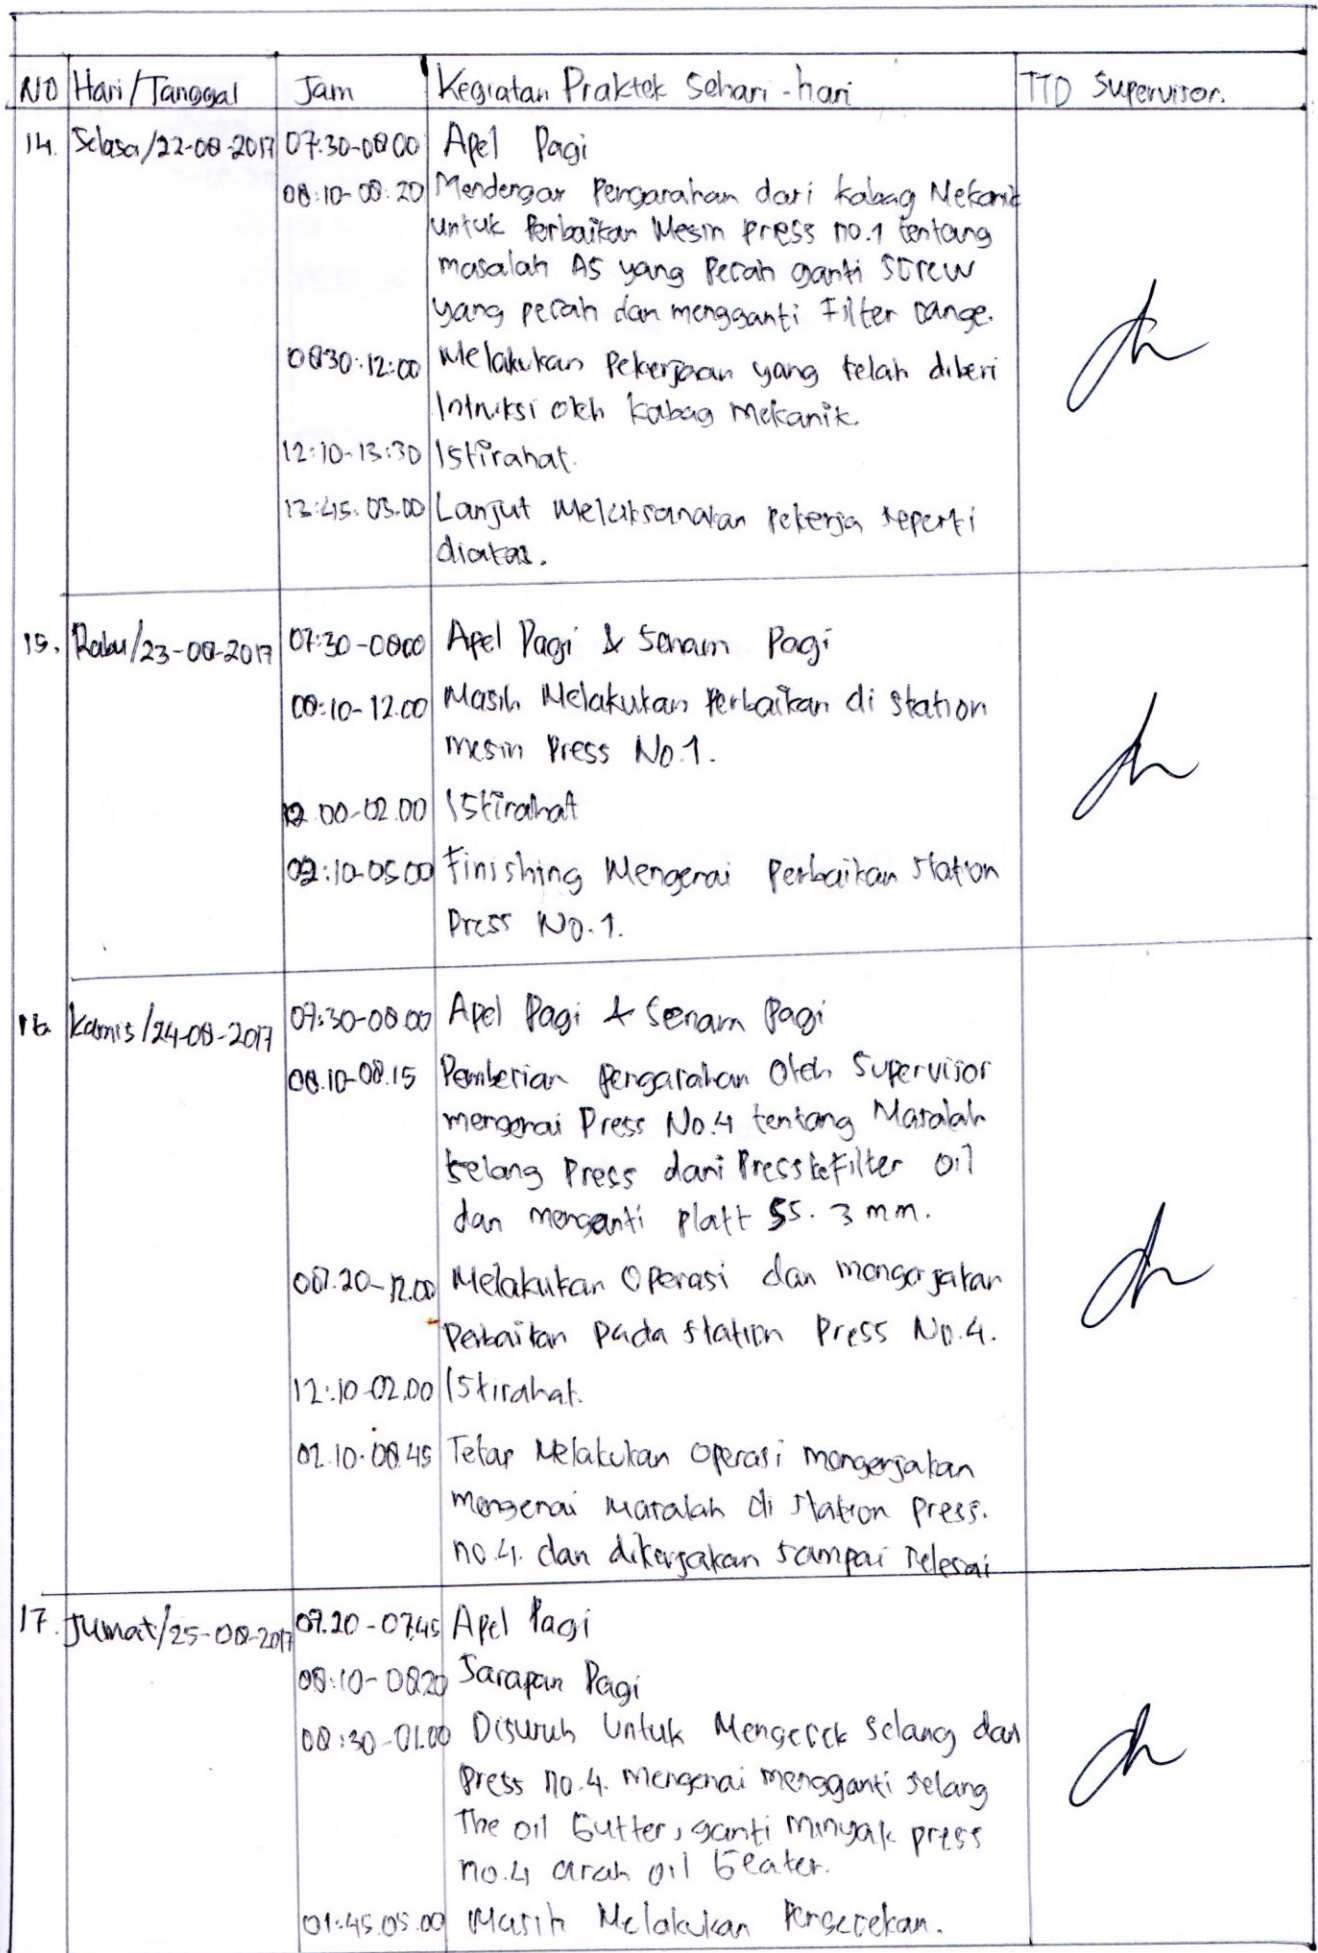 NO Hari/Tanggal Jam Kegiatan Praktek Sehari-hari TTD Supervisor.
14. Selasa/22-08-2017 07:30-0800 Apel Pagi
08:10-08:20 Mendengar Pengarahan dari kabag Mekanik
untuk Perbaikan Mesin press no.1 tentang
masalah AS yang Pecah ganti Screw
yang pecah dan mengganti Filter
0830:12:00 Melakukan Pekerjaan yang telah diberi
Intruksi oleh kabag mekanik.
12:10-13:30 Istirahat.
13:45.03.00 Lanjut Melaksanakan Pekerja seperti
diatas.
15. Rabu/23-08-2017 07:30-0800 Apel Pagi & Senam Pagi
08:10-12.00 Masih Melakukan Perbaikan di Station
mesin Press No.1.
12.00-02.00 Istirahat
02:10-05.00 Finishing Mengenai Perbaikan Station
Press No.1.
16. Kamis/24-08-2017 07:30-08.00 Apel Pagi & Senam Pagi
08.10-08.15 Pemberian Pengarahan Oleh Supervisor
mengenai Press No.4 tentang Masalah
Selang Press dari Press ke Filter oil
dan menganti platt SS. 3 mm.
08.20-12.00 Melakukan Operasi dan mengerjakan
Perbaikan pada Station Press No.4.
12:10-02.00 Istirahat.
02.10-08.45 Tetap Melakukan Operasi mengerjakan
mengenai Masalah di Station Press.
no.4. dan dikerjakan sampai selesai
17. Jumat/25-08-2017 07.20-07.45 Apel Pagi
08:10-0820 Sarapan Pagi
08:30-01.00 Disuruh Untuk Mengecek Selang dan
Press no.4. mengenai mengganti selang
The oil Gutter, ganti minyak press
no.4 arah oil
01:45.05.00 Masih Melakukan Pengecekan.